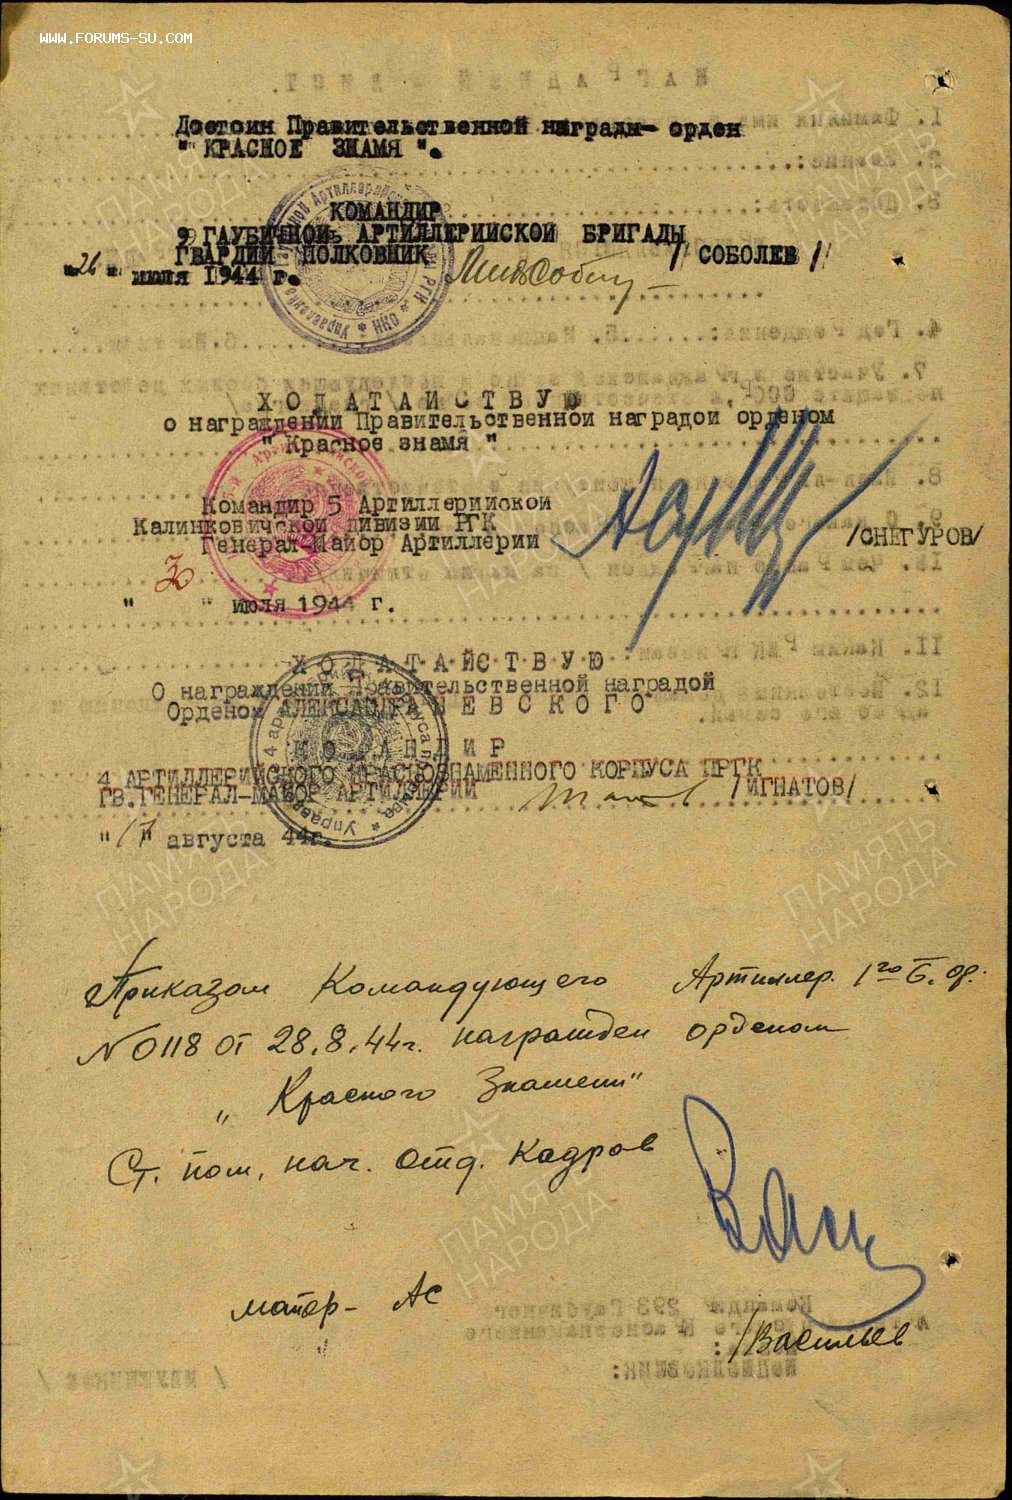 WWW.FORUMS-SU.COM
Достоин Правительственной награды- орден
" КРАСНОЕ ЗНАМЯ ".
КОМАНДИР
9 ГАУБИЧНОЙ АРТИЛЛЕРИЙСКОЙ БРИГАДЫ
ГВАРДИИ ПОЛКОВНИК // СОБОЛЕВ //
"26" июля 1944 г.
ХОДАТАЙСТВУЮ
о награждении Правительственной наградой орденом
" Красное знамя "
Командир 5 Артиллерийской
Калинковичской дивизии РГК
Генерал-Майор Артиллерии /СНЕГУРОВ/
" " июля 1944 г.
ХОДАТАЙСТВУЮ
О награждении Правительственной наградой
Орденом АЛЕКСАНДРА НЕВСКОГО
КОМАНДИР
4 АРТИЛЛЕРИЙСКОГО КРАСНОЗНАМЕННОГО КОРПУСА ПРГК
ГВ.ГЕНЕРАЛ-МАЙОР АРТИЛЛЕРИИ /ИГНАТОВ/
"17" августа 44г.
Приказом Командующего Артиллер. 1го Б. фр.
№ 0118 от 28.8.44г. награжден орденом
„ Красного Знамени"
Ст. пом. нач. отд. кадров
майор - Ас
/Васильев
ПАМЯТЬ
НАРОДА